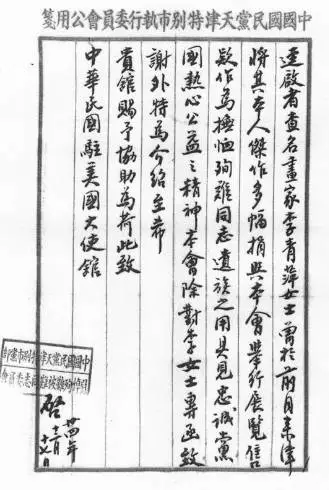 中國國民黨天津特別市執行委員會公用箋
逕啟者查名畫家李青萍女士曾於前月來津
將其本人傑作多幅捐與本會舉行展覽售
款作為撫恤殉難同志遺族之用具見忠誠黨
國熱心公益之精神本會除對李女士專函致
謝外特為介紹至希
貴館賜予協助為荷此致
中華民國駐美國大使館
中國國民黨天津特別市黨部
同志委員會
啟
卅四年
十七日